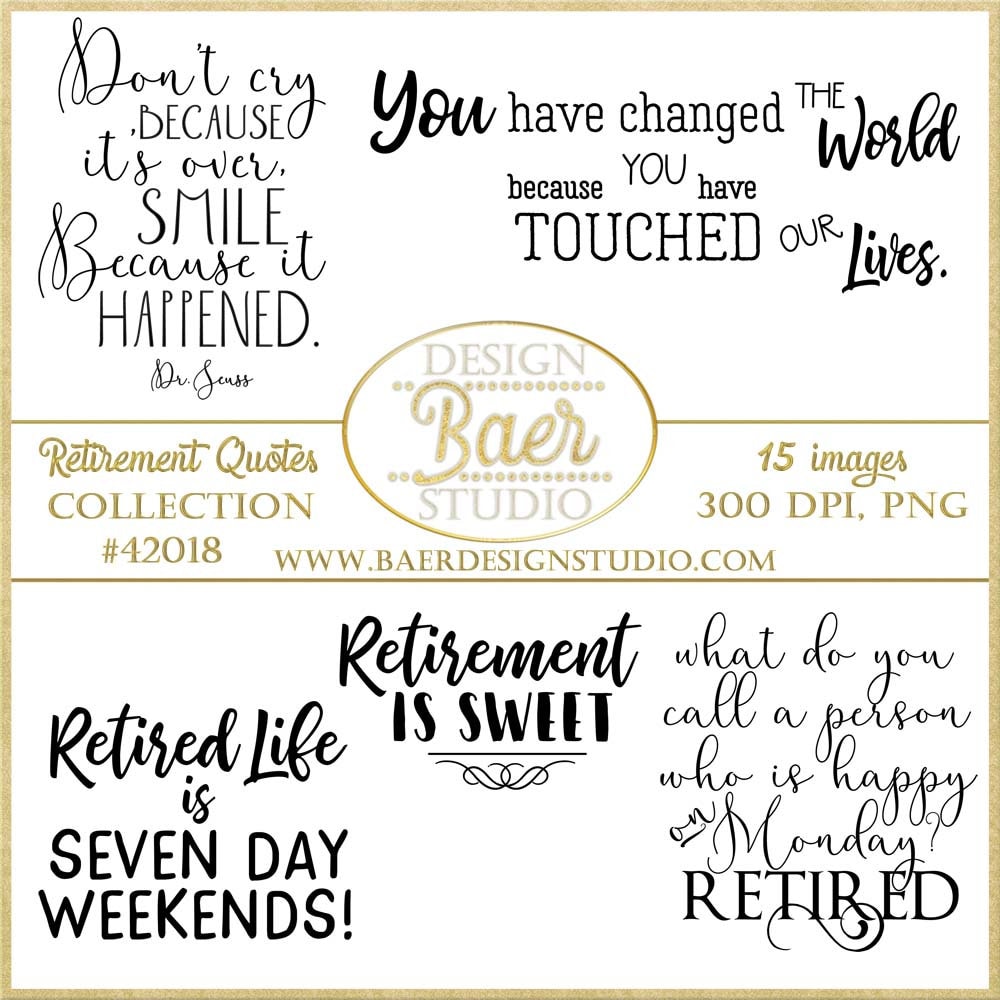 Don't cry
,BECAUSE
it's over,
SMILE
Because it
HAPPENED.
Dr. Seuss
You have changed THE World
because YOU have
TOUCHED OUR Lives.
DESIGN
Baer
STUDIO
Retirement Quotes
COLLECTION
#42018
15 images
300 DPI, PNG
WWW.BAERDESIGNSTUDIO.COM
Retired Life
is
SEVEN DAY
WEEKENDS!
Retirement
IS SWEET
what do you
call a person
who is happy
on Monday?
RETIRED